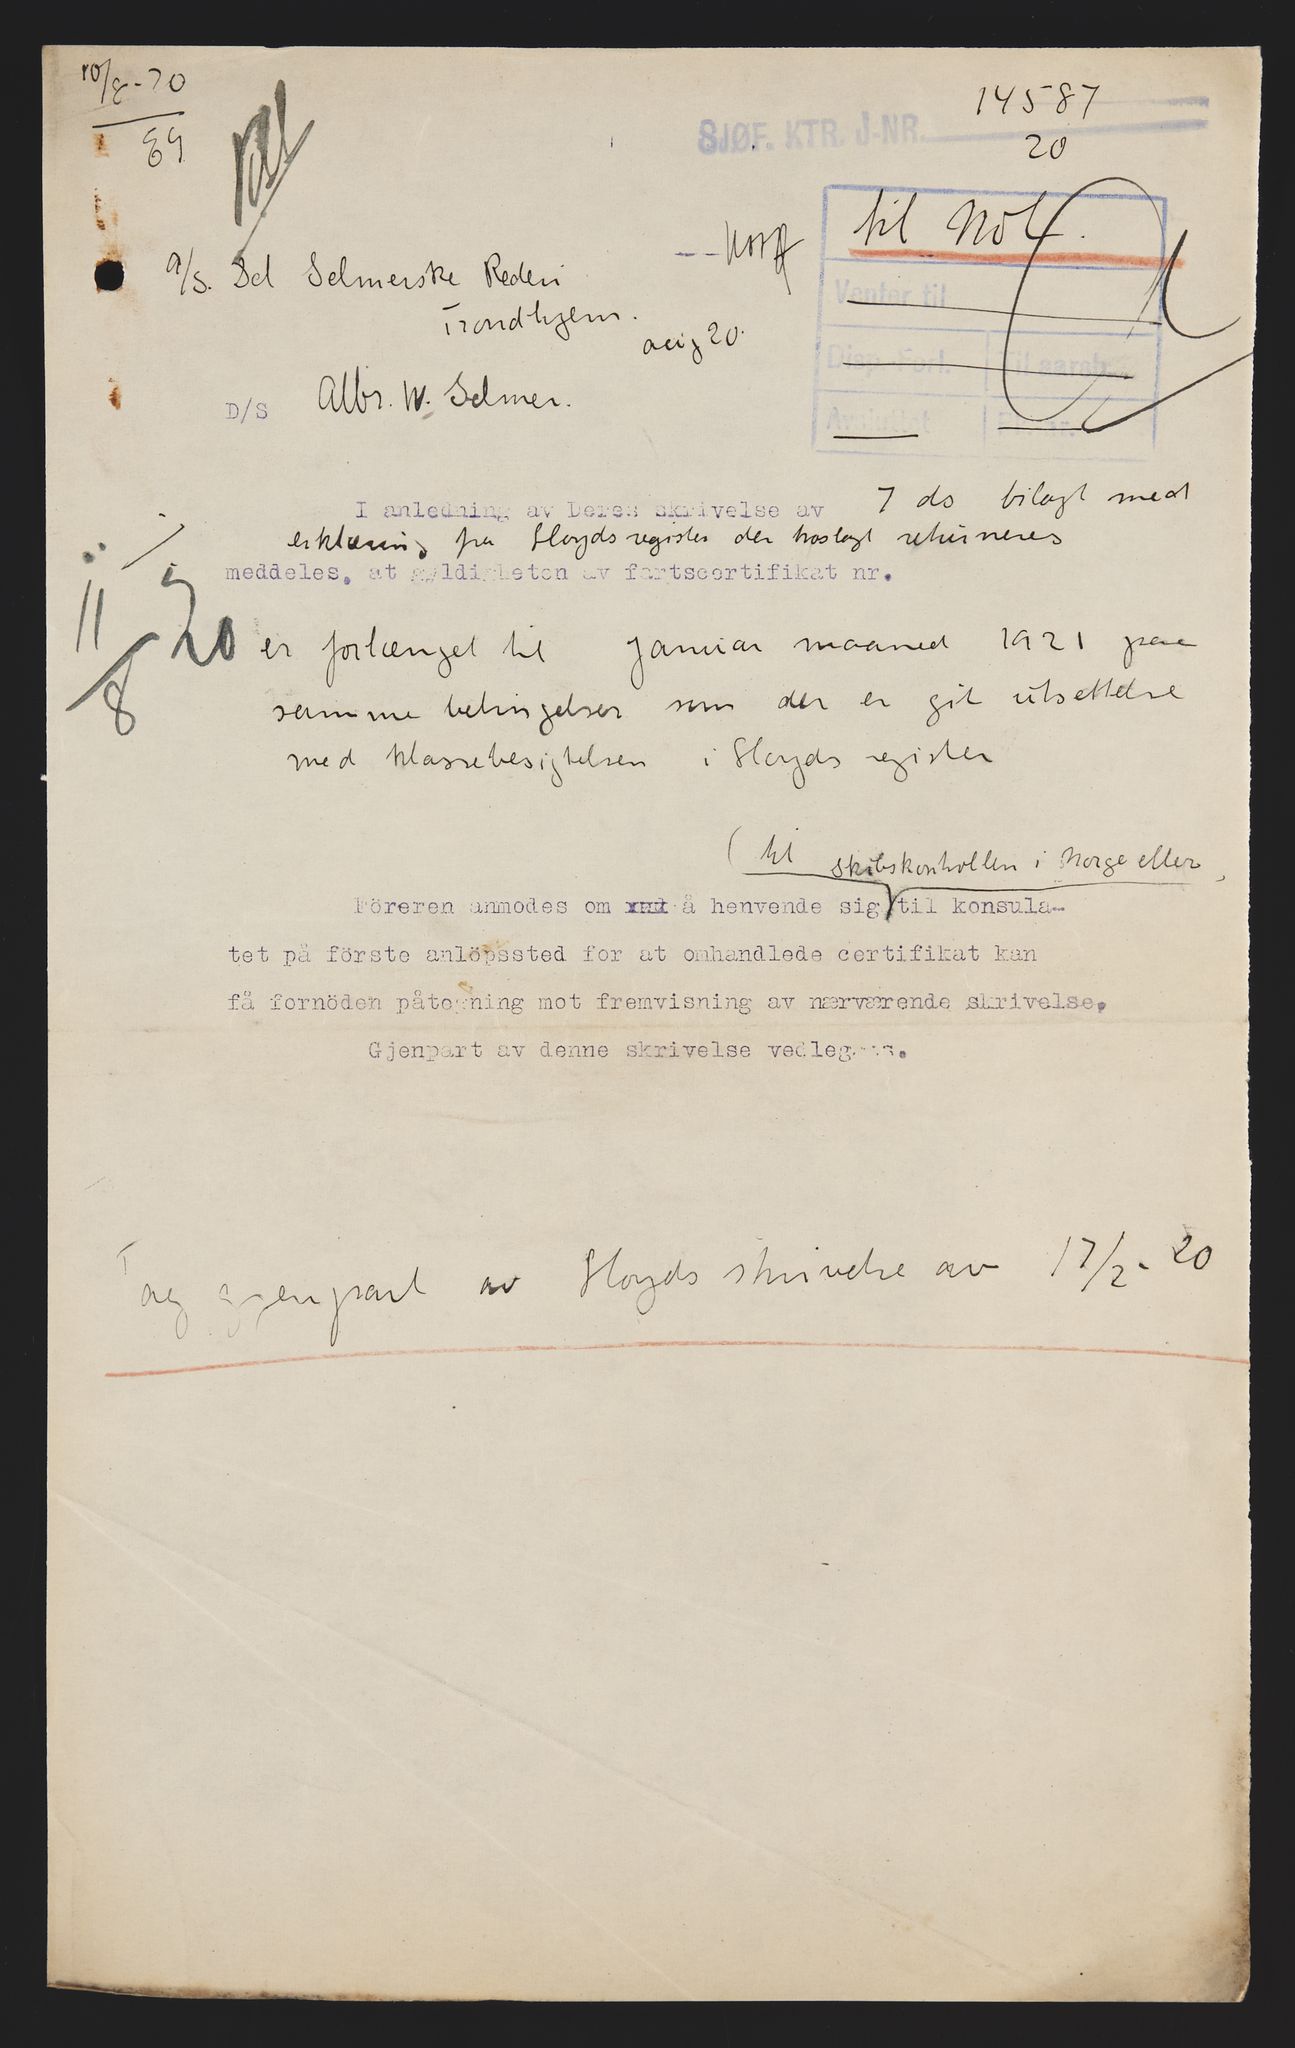 10/8-20
14587
SJØF. KTR. J-NR.
20
til Not.
A/S. Det Selmerske Rederi
Trondhjem.
Venter til
aug 20.
Disp. Forl.
D/S Albr. W. Selmer.
Avsluttet
I anledning av Deres skrivelse av 7 ds bilagt med
erklæring fra Lloyds register der hoslagt returneres
meddeles, at gyldigheten av fartscertifikat nr.
11/8 20
er forlænget til januar maaned 1921 paa
samme betingelser som der er git utsettelse
med klassebesigtelsen i Lloyds register
(til skibskontrollen i Norge eller
Föreren anmodes om å henvende sig til konsula-
tet på förste anlöpssted for at omhandlede certifikat kan
få fornöden påtegning mot fremvisning av nærværende skrivelse.
Gjenpart av denne skrivelse vedlegges.
Tag gjenpart av Lloyds skrivelse av 17/2-20